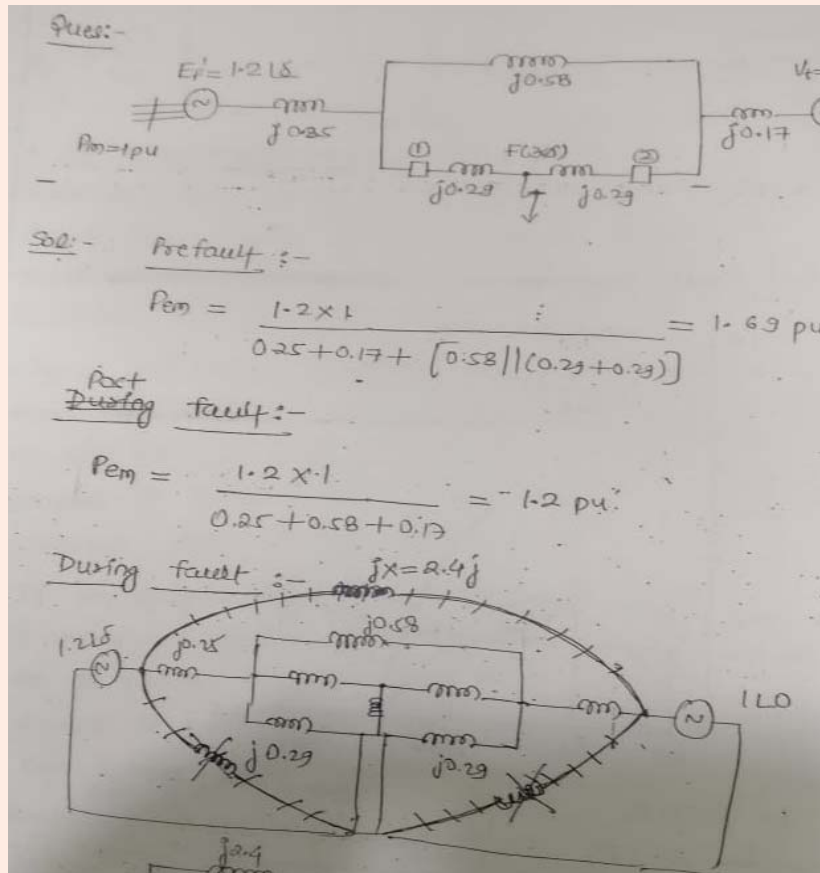 Ques:-
E_f' = 1.2∠δ
j0.58
V_t=
j0.25
j0.17
Pm=1pu
① F(3ϕ) ②
j0.29 j0.29
Sol:- Prefault :-
Pem = 1.2×1 / 0.25+0.17+[0.58||(0.29+0.29)] = 1.69 pu
Post
During fault:-
Pem = 1.2×1 / 0.25+0.58+0.17 = 1.2 pu
During fault :- jX=2.4j
1.2∠δ j0.25 j0.58
1∠0
j0.29 j0.29
j2.4